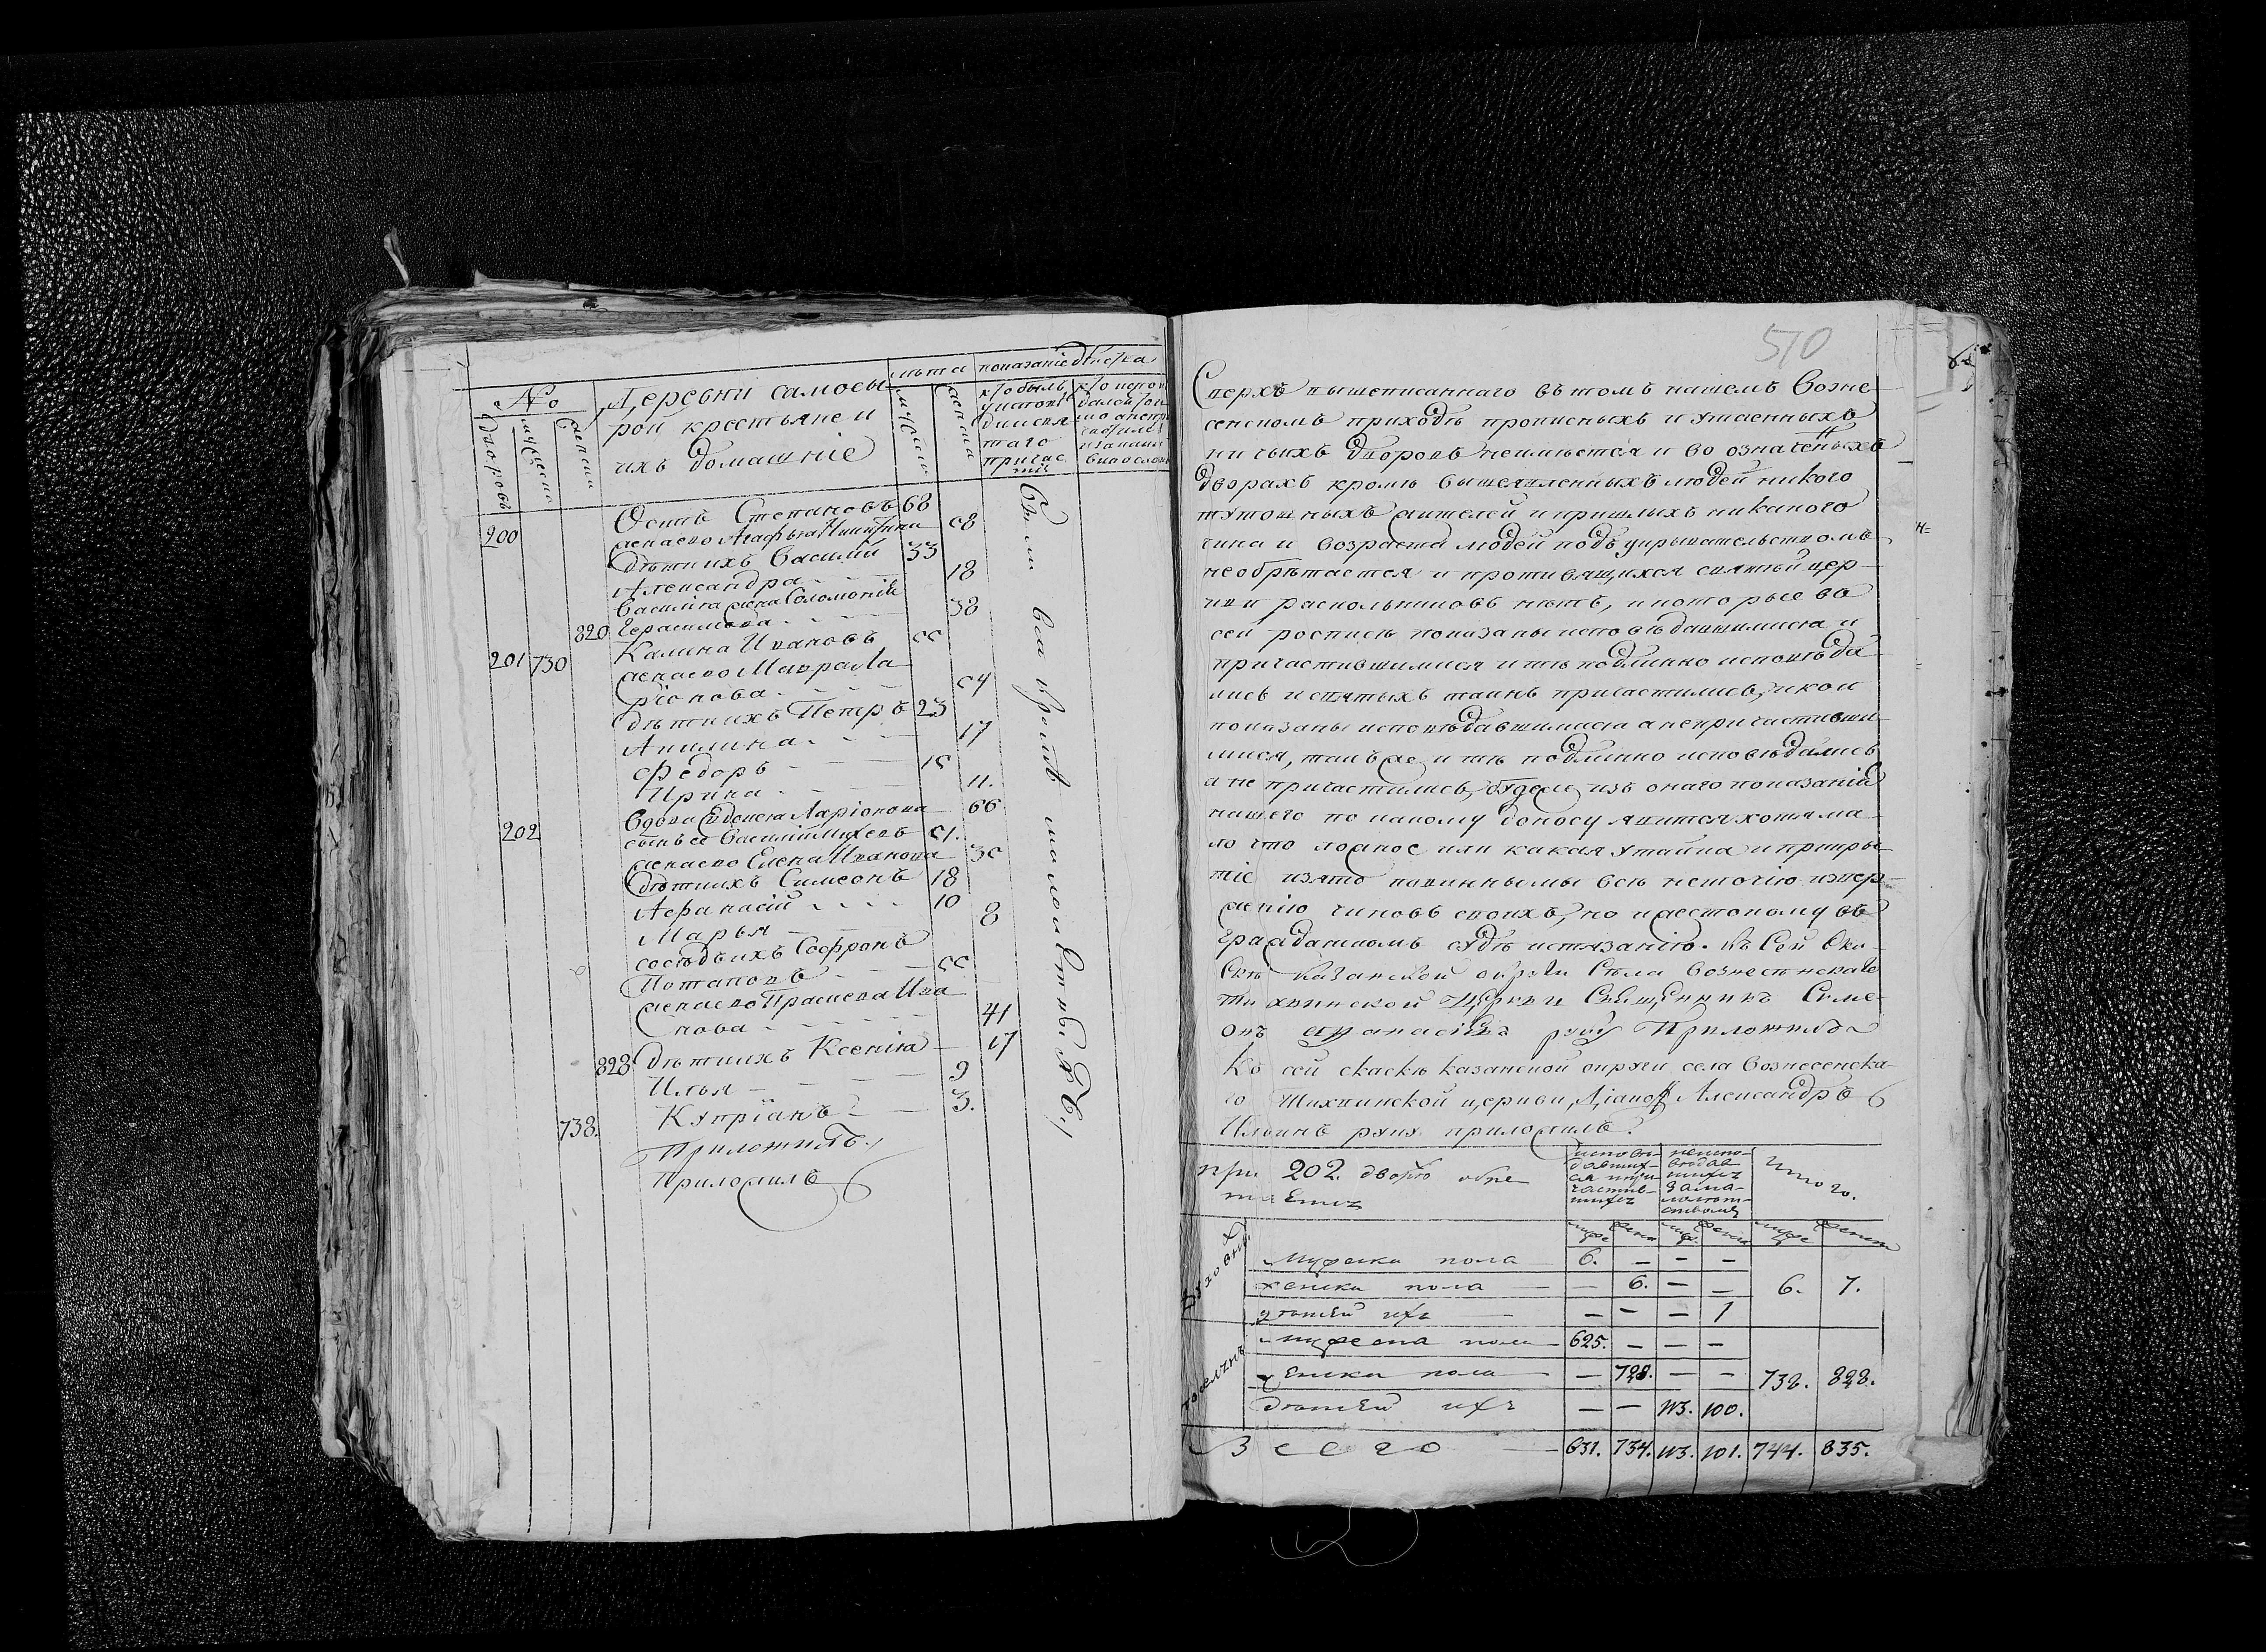 №
дворовъ
мужеска
женска
Деревни самосы
рой крестьяне и
ихъ домашніе
лѣта
мужеска
женска
показаніе дѣйства
кто былъ
у исповѣ
ди и свя
таго
причас
тия
200
Осипъ Степановъ 68
жена ево Агафья Никитина 58
дѣти ихъ Василій 33
Александра 18
Василіа жена Соломонія
820 Герасимова 38
201 730 Калина Ивановъ 55
жена ево Мавра Ла
ріонова 54
дѣти ихъ Петръ 23
Акилина 17
Федоръ 15
Ирина 11.
202
Вдова Евдокея Ларіонова 66
сынъ ее Василій 51.
жена ево Елена Иванова 35
дѣти ихъ Симеонъ 18
Афанасій 10
Марья 8
сосѣдъ ихъ Софронъ
Потаповъ 55
жена ево Праскева Ива
нова 41
828 дѣти ихъ Ксенія 17
Илья 9
738. Купріанъ 3.
Приложилъ
Приложилъ
Были вси кромѣ малолѣтныхъ
510
Сверхъ вышеписаннаго въ томъ нашемъ Возне
сенскомъ приходѣ прописныхъ и утаенныхъ
ни чьихъ дворовъ неимѣется и во означенныхъ
дворахъ кромѣ вышеявленныхъ людей никого
тутошныхъ жителей и пришлыхъ никакого
чина и возраста людей подъ укрывательствомъ
необрѣтается и противящихся святѣй цер-
кви раскольниковъ нѣтъ, и которые во
сей росписи показаны исповѣдавшимися и
причастившимися и тѣ подлинно исповѣда
лись и святыхъ таинъ причастились, и кои
показаны исповѣдавшимися а непричастивши
мися, также и тѣ подлинно исповѣдались
а не причастились, буде изъ онаго показанія
нашего по какому доносу явится хотя ма
ло что ложное или какая утайка и прикры
тіе и за то повинны мы всѣ неточію извер-
женію чиновъ своихъ, но и жестокому въ
гражданскомъ судѣ истязанію. Къ Сей Ска
скѣ Казанской округи Села Вознесенскаго
Тихвинской Церкви Священникъ Симе
онъ Афанасіевъ руку Приложилъ
Ко сей скаскѣ казанской округи села Вознесенска
го Тихвинской церкви Діаконъ Александръ
Ильинъ руку приложилъ.
при 202. дворѣ обре
тается
исповѣ
давших-
ся и при
частив-
шихся
неиспо
вѣдав
шихся
за ма
лолѣт-
ствомъ
Итого.
муж женс муж женс мужс женска
Духовныхъ
Мужеска пола 6. — — —
женска пола — 6. — — 6. 7.
дѣтей ихъ — — — 1
мужеска пола 625. — — —
женска пола — 728. — — 738. 828.
дѣтей ихъ — — 113. 100.
Всего 631. 734. 113. 101. 744. 835.